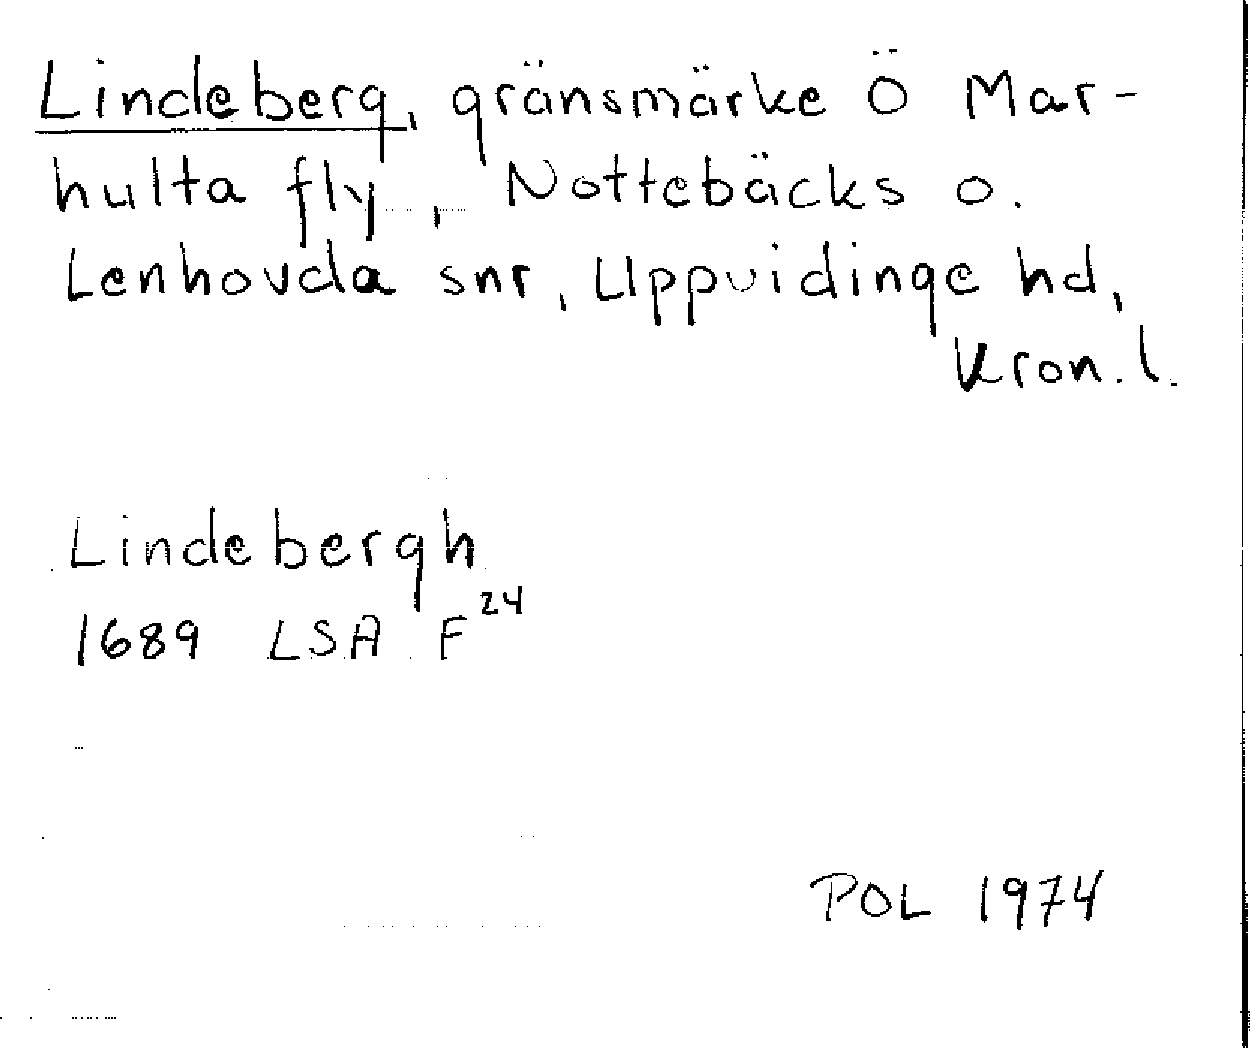 Lindeberg, gränsmärke Ö Mar-
hulta fly, Nottebäcks o.
Lenhovda snr, Uppvidinge hd,
Kron. l.
Lindebergh
1689 LSA F 24
POL 1974